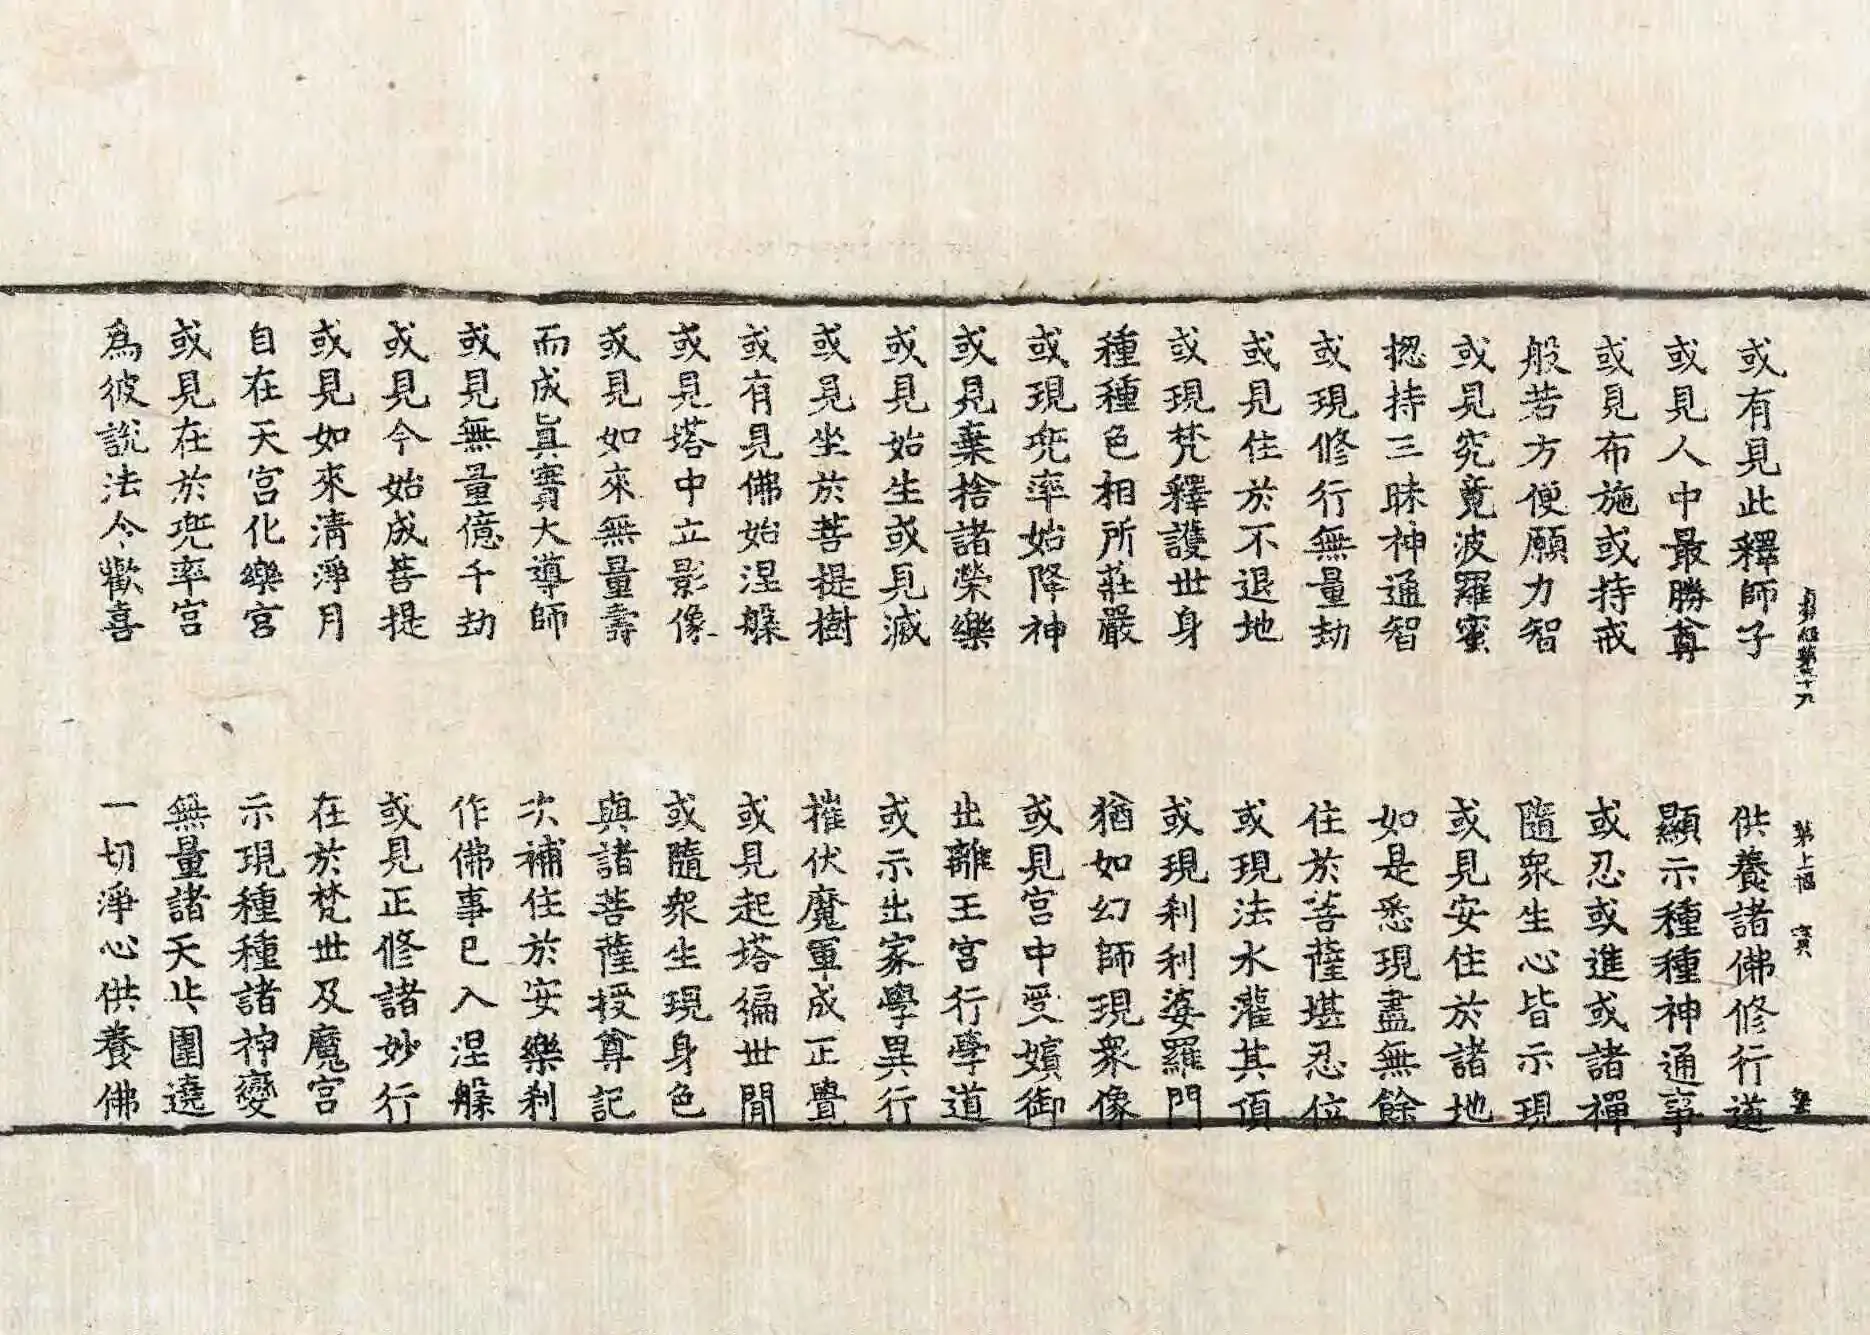 或有見此釋師子 供養諸佛修行道
或見人中最勝尊 顯示種種神通事
或見布施或持戒 或忍或進或諸禪
般若方便願力智 隨衆生心皆示現
或見究竟波羅蜜 或見安住於諸地
揔持三昧神通智 如是悉現盡無餘
或現修行無量劫 住於菩薩堪忍位
或見住於不退地 或現法水灌其頂
或現梵釋護世身 或現刹利婆羅門
種種色相所莊嚴 猶如幻師現衆像
或現兜率始降神 或見宮中受嬪御
或見棄捨諸榮樂 出離王宮行學道
或見始生或見滅 或示出家學異行
或見坐於菩提樹 摧伏魔軍成正覺
或有見佛始涅槃 或見起塔徧世間
或見塔中立影像 或隨衆生現身色
或見如來無量壽 與諸菩薩授尊記
而成眞實大導師 次補住於安樂刹
或見無量億千劫 作佛事已入涅槃
或見今始成菩提 或見正修諸妙行
或見如來清淨月 在於梵世及魔宮
自在天宮化樂宮 示現種種諸神變
或見在於兜率宮 無量諸天共圍遶
為彼說法令歡喜 一切淨心供養佛